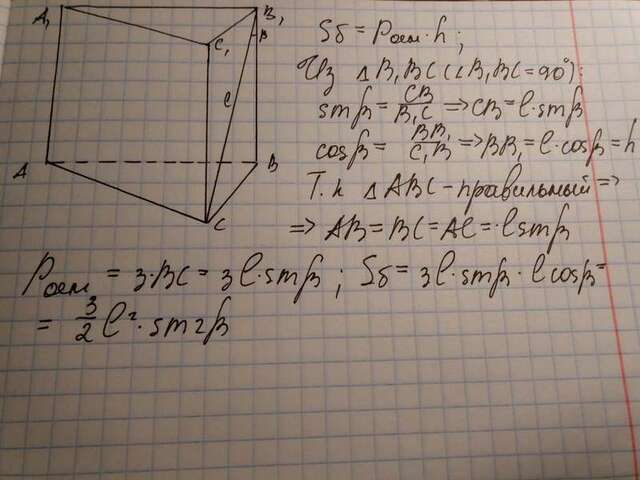 A₁
B₁
C₁
β
l
A
B
C
Sб = Pосн · h ;
Из △ B₁BC (∠B₁BC = 90°) :
sinβ = CB/B₁C => CB = l · sinβ
cosβ = BB₁/C₁B => BB₁ = l · cosβ = h
Т. к △ ABC - правильный =>
=> AB = BC = AC = l sinβ
Pосн = 3·BC = 3l·sinβ ; Sб = 3l·sinβ · l cosβ =
= 3/2 l² · sin2β